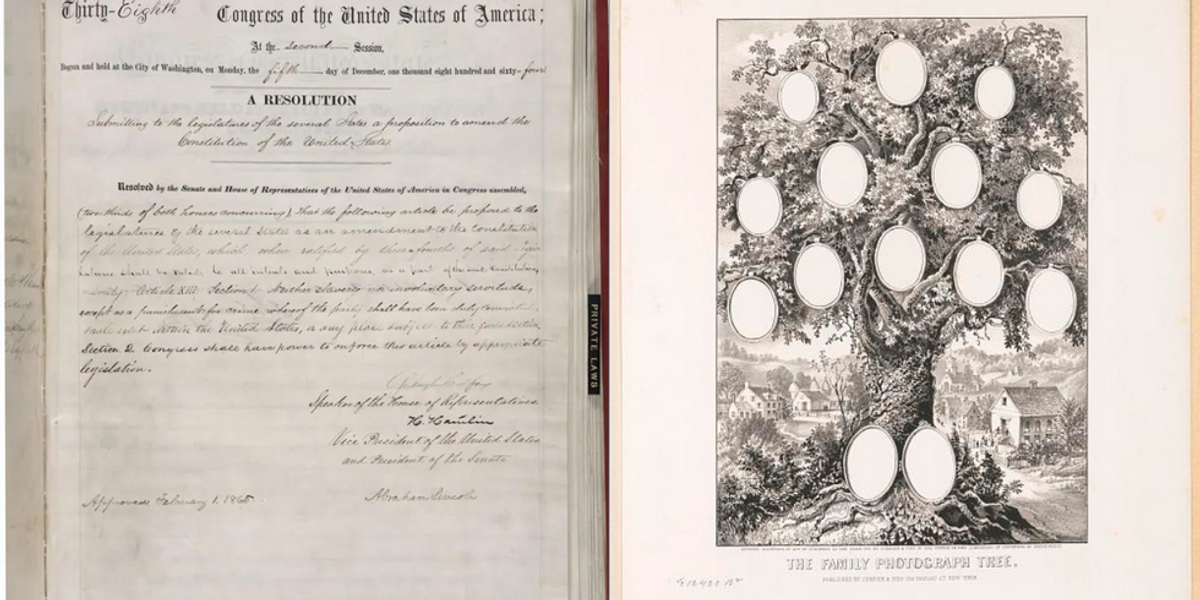 Thirty-Eighth Congress of the United States of America;
At the second Session,
Begun and held at the City of Washington, on Monday, the fifth day of December, one thousand eight hundred and sixty-four
A RESOLUTION
Submitting to the legislatures of the several States a proposition to amend the
Constitution of the United States
Resolved by the Senate and House of Representatives of the United States of America in Congress assembled,
(two-thirds of both houses concurring), That the following article be proposed to the
legislatures of the several States as an amendment to the Constitution
of the United States, which, when ratified by three-fourths of said legis-
latures shall be valid, to all intents and purposes, as a part of the said Constitution,
namely: Article XIII. Section 1. Neither slavery nor involuntary servitude,
except as a punishment for crime whereof the party shall have been duly convicted,
shall exist within the United States, or any place subject to their jurisdiction.
Section 2. Congress shall have power to enforce this article by appropriate
legislation.
Speaker of the House of Representatives
H. Hamlin
Vice President of the United States
and President of the Senate
Approved February 1. 1865.
Abraham Lincoln
PRIVATE LAWS
THE FAMILY PHOTOGRAPH TREE.
PUBLISHED BY CURRIER & IVES 125 NASSAU ST NEW YORK